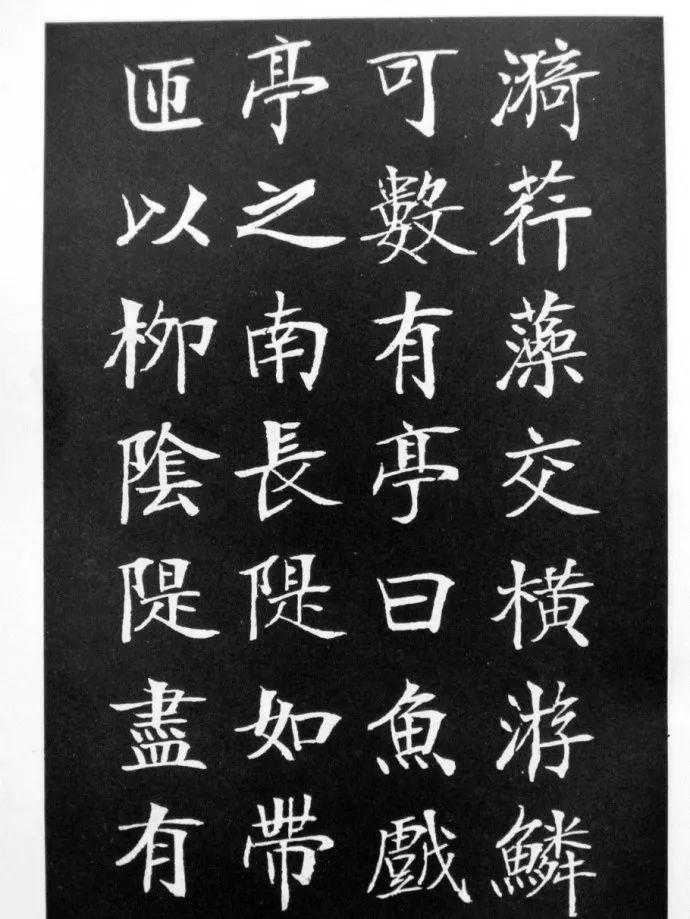 漪荇藻交橫游鱗
可數有亭曰魚戲
亭之南長隄如帶
匝以柳陰隄盡有